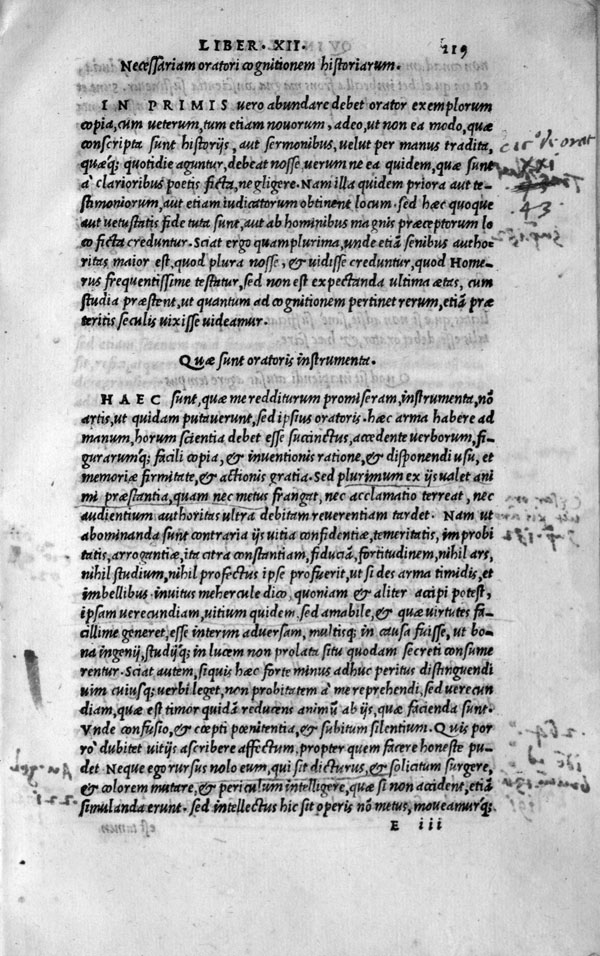 LIBER · XII · 219
Necessariam oratori cognitionem historiarum.
IN PRIMIS vero abundare debet orator exemplorum
copia, cum veterum, tum etiam novorum, adeo, ut non ea modo, quæ
conscripta sunt historijs, aut sermonibus, velut per manus tradita,
quæq; quotidie aguntur, debeat nosse, verum ne ea quidem, quæ sunt
à clarioribus poetis ficta, negligere. Nam illa quidem priora aut te-
stimoniorum, aut etiam iudicatorum obtinent locum. sed hæc quoque
aut vetustatis fide tuta sunt, aut ab hominibus magnis præceptorum lo
co ficta creduntur. Sciat ergo quamplurima, unde etiã senibus autho
ritas maior est, quod plura nosse, & vidisse creduntur, quod Home-
rus frequentissime testatur, sed non est expectanda ultima ætas, cum
studia præstent, ut quantum ad cognitionem pertinet rerum, etiã præ
teritis seculis vixisse videamur.
Quæ sunt oratoris instrumenta.
HAEC sunt, quæ me redditurum promiseram, instrumenta, nõ
artis, ut quidam putaverunt, sed ipsius oratoris. hæc arma habere ad
manum, horum scientia debet esse succinctus, accedente verborum, fi-
gurarumq; facili copia, & inventionis ratione, & disponendi usu, et
memoriæ firmitate, & actionis gratia. Sed plurimum ex ijs valet ani
mi præstantia, quam nec metus frangat, nec acclamatio terreat, nec
audientium authoritas ultra debitam reverentiam tardet. Nam ut
abominanda sunt contraria ijs vitia confidentiæ, temeritatis, improbi
tatis, arrogantiæ, ita citra constantiam, fiduciã, fortitudinem, nihil ars,
nihil studium, nihil profectus ipse profuerit, ut si des arma timidis, et
imbellibus. invitus mehercule dico, quoniam & aliter accipi potest,
ipsam verecundiam, vitium quidem, sed amabile, & quæ virtutes fa-
cillime generet, esse interim adversam, multisq; in causa fuisse, ut bo-
na ingenij, studijq; in lucem non prolata situ quodam secreti consume
rentur. Sciat autem, siquis hæc forte minus adhuc peritus distinguendi
vim cuiusq; verbi leget, non probitatem à me reprehendi, sed verecun
diam, quæ est timor quidã reducens animũ ab ijs, quæ facienda sunt.
Vnde confusio, & cœpti pœnitentia, & subitum silentium. Quis por
ro dubitet vitijs ascribere affectum, propter quem facere honeste pu-
det Neque ego rursus nolo eum, qui sit dicturus, & solicitum surgere,
& colorem mutare, & periculum intelligere, quæ si non accident, etiã
simulanda erunt. sed intellectus hic sit operis nõ metus, moveamurq;
E iii
43